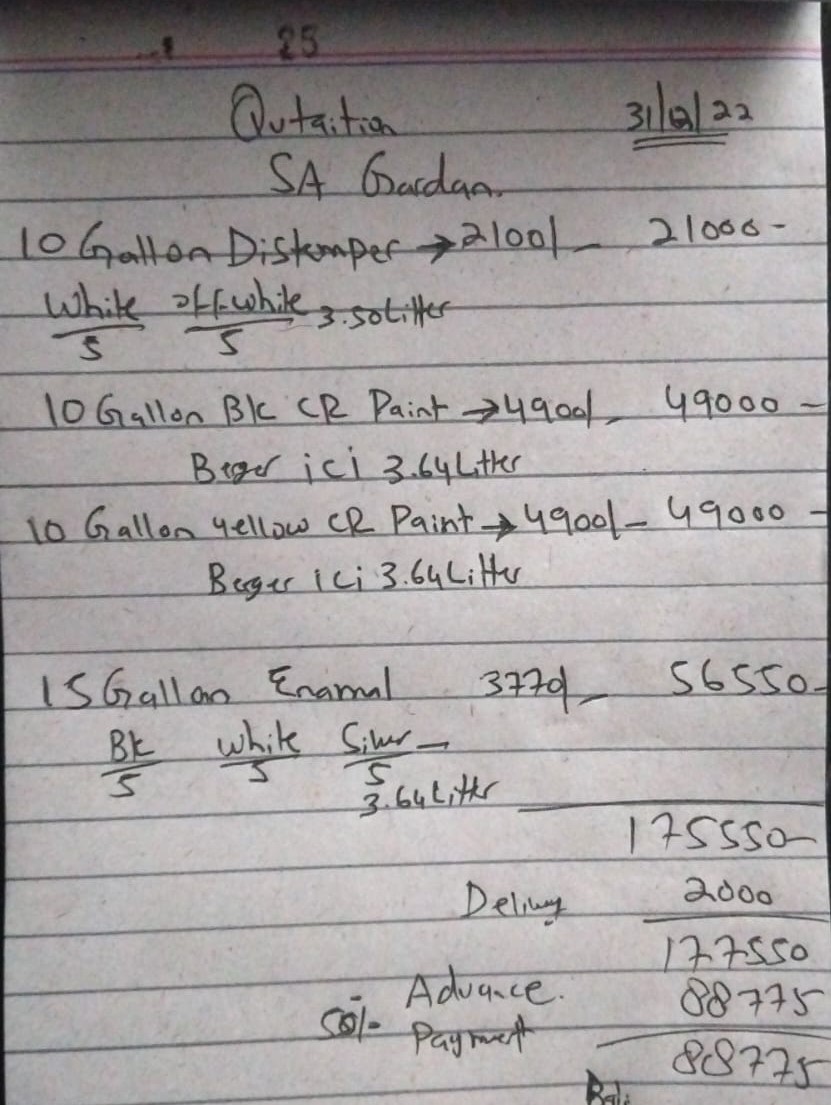 25
Qutaition 31/12/22
SA Gardan.
10 Gallon Distemper → 2100/- 21000-
White/5 off-white/5 3.50 Litter
10 Gallon Blc CR Paint → 4900/- 49000-
Berger ici 3.64 Litter
10 Gallon yellow CR Paint → 4900/- 49000-
Berger ici 3.64 Litter
15 Gallan Enamal 3770/- 56550-
Bk/5 white/5 Silver/5 -
3.64 Litter
175550-
Delivry 2000
177550
50% Advance. 88775
Payment
88775